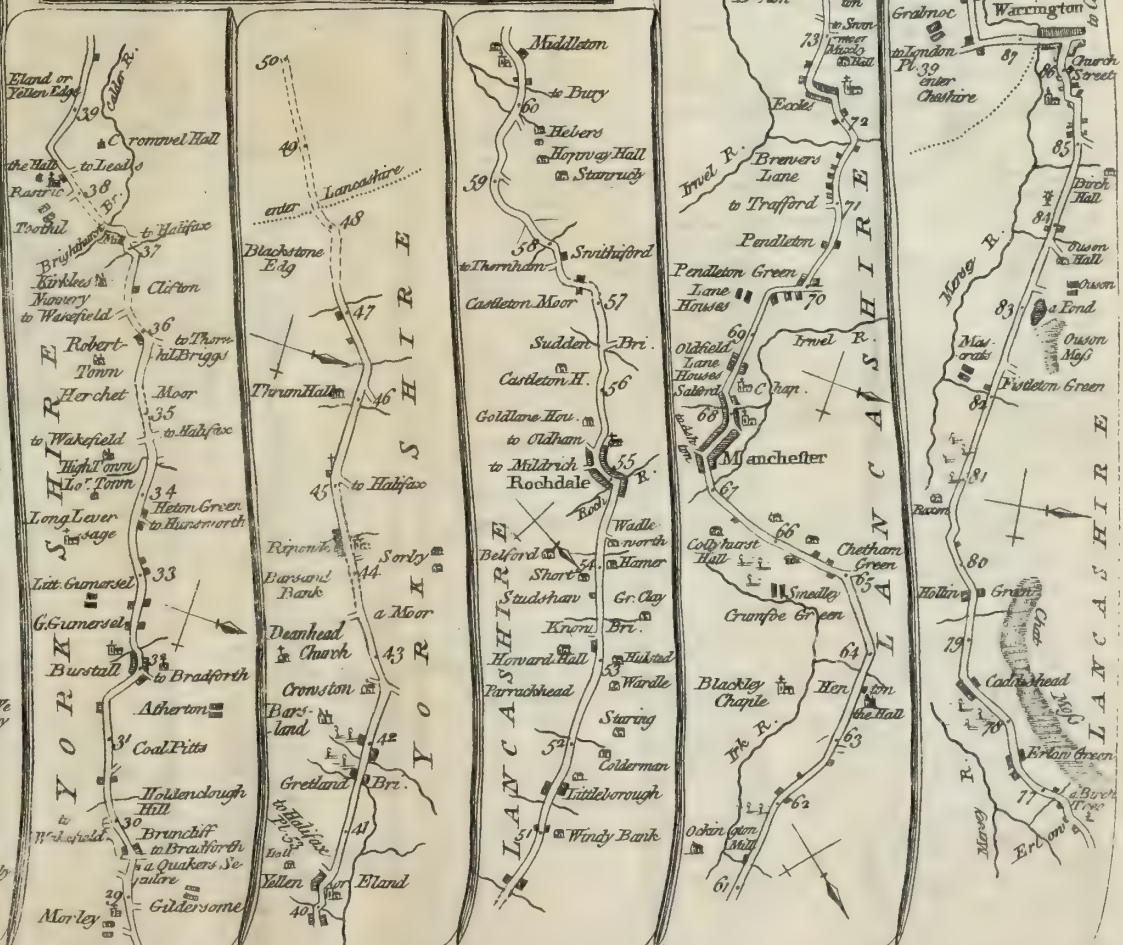 Eland or
Yellen Edge
Calder R.
39
Cromwel Hall
the Hall
to Leads
Rastric
38
Toothil
Br.
to Halifax
37
Kirklees
Nunnery
Clifton
to Wakefield
36
to Thorn
hil Briggs
Robert
Town
Herchet Moor
35
to Wakefield
to Halifax
High Town
Lor. Town
34
Heton Green
to Hunsworth
Long Lever
sage
Litt. Gumersel
33
G. Gumersel
Burstall
to Bradforth
Atherton
31
Coal Pitts
Holdenclough
Hill
30
to
Wakefield
Bruncliff
to Bradforth
a Quakers Se-
pulcre
29
Morley
Gildersome
YORKSHIRE
50
49
enter Lancashire
48
Blackstone
Edg
47
Thrum Hall
46
45
to Halifax
Sorby
Barsand
Bank
44
a Moor
Deanhead
Church
43
Crowston
Bars-
land
42
Gretland Bri.
to Halifax
Pl. 53
41
Hall
Yellen or Eland
40
YORKSHIRE
Middleton
to Bury
60
Hebers
Hopway Hall
59
Stanrudy
58
Smithiford
to Thornham
Castleton Moor
57
Sudden Bri.
Castleton H.
56
Goldlane Hou.
to Oldham
to Mildrich
55
Rochdale
Roch R.
Wadle
north
Belford
54
Hamer
Short
Studshaw
Gr. Clay
Knoni Bri.
Howard Hall
Hulsted
53
Wardle
Parrackhead
Staring
52
Colderman
Littleborough
51
Windy Bank
LANCASHIRE
73
Hall
Eccles
72
Irwel R.
Brewers
Lane
to Trafford
71
Pendleton
Pendleton Green
Lane
Houses
70
69
Irwel R.
Oldfield
Lane
Houses
Salford
Chap.
68
to Ash
ton
Manchester
67
66
Collyhurst
Hall
Chetham
Green
65
Smedley
Crumfoe Green
64
Blackley
Chaple
Hen ton
the Hall
Irk R.
63
62
Ockington
Mill
61
LANCASHIRE
Grabnoc
Warrington
to London
Pl. 39
87
enter
Cheshire
86
Church
Street
85
Birch
Hall
84
Ouson
Hall
Mersey R.
Ouson
83
a Pond
Ouson
Moss
Mas
crats
Fistleton Green
82
81
Rixon
80
Hollin Green
Chat Moss
79
Cadishead
78
Erlow Green
77
a Birch
Tree
Mersey R.
Erlow
LANCASHIRE